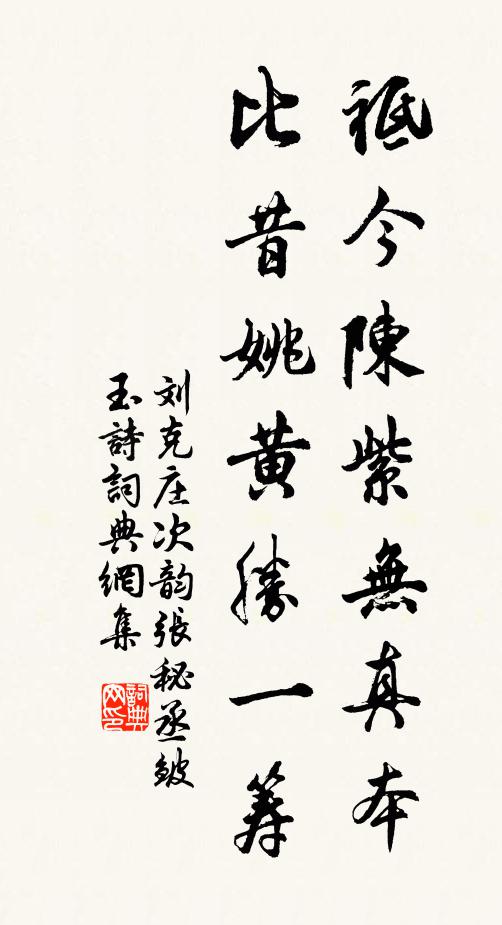 祗今陳紫無真本
比昔姚黄勝一筹
刘克庄次韵張秘丞皱
玉詩詞典網集
詞典
网印